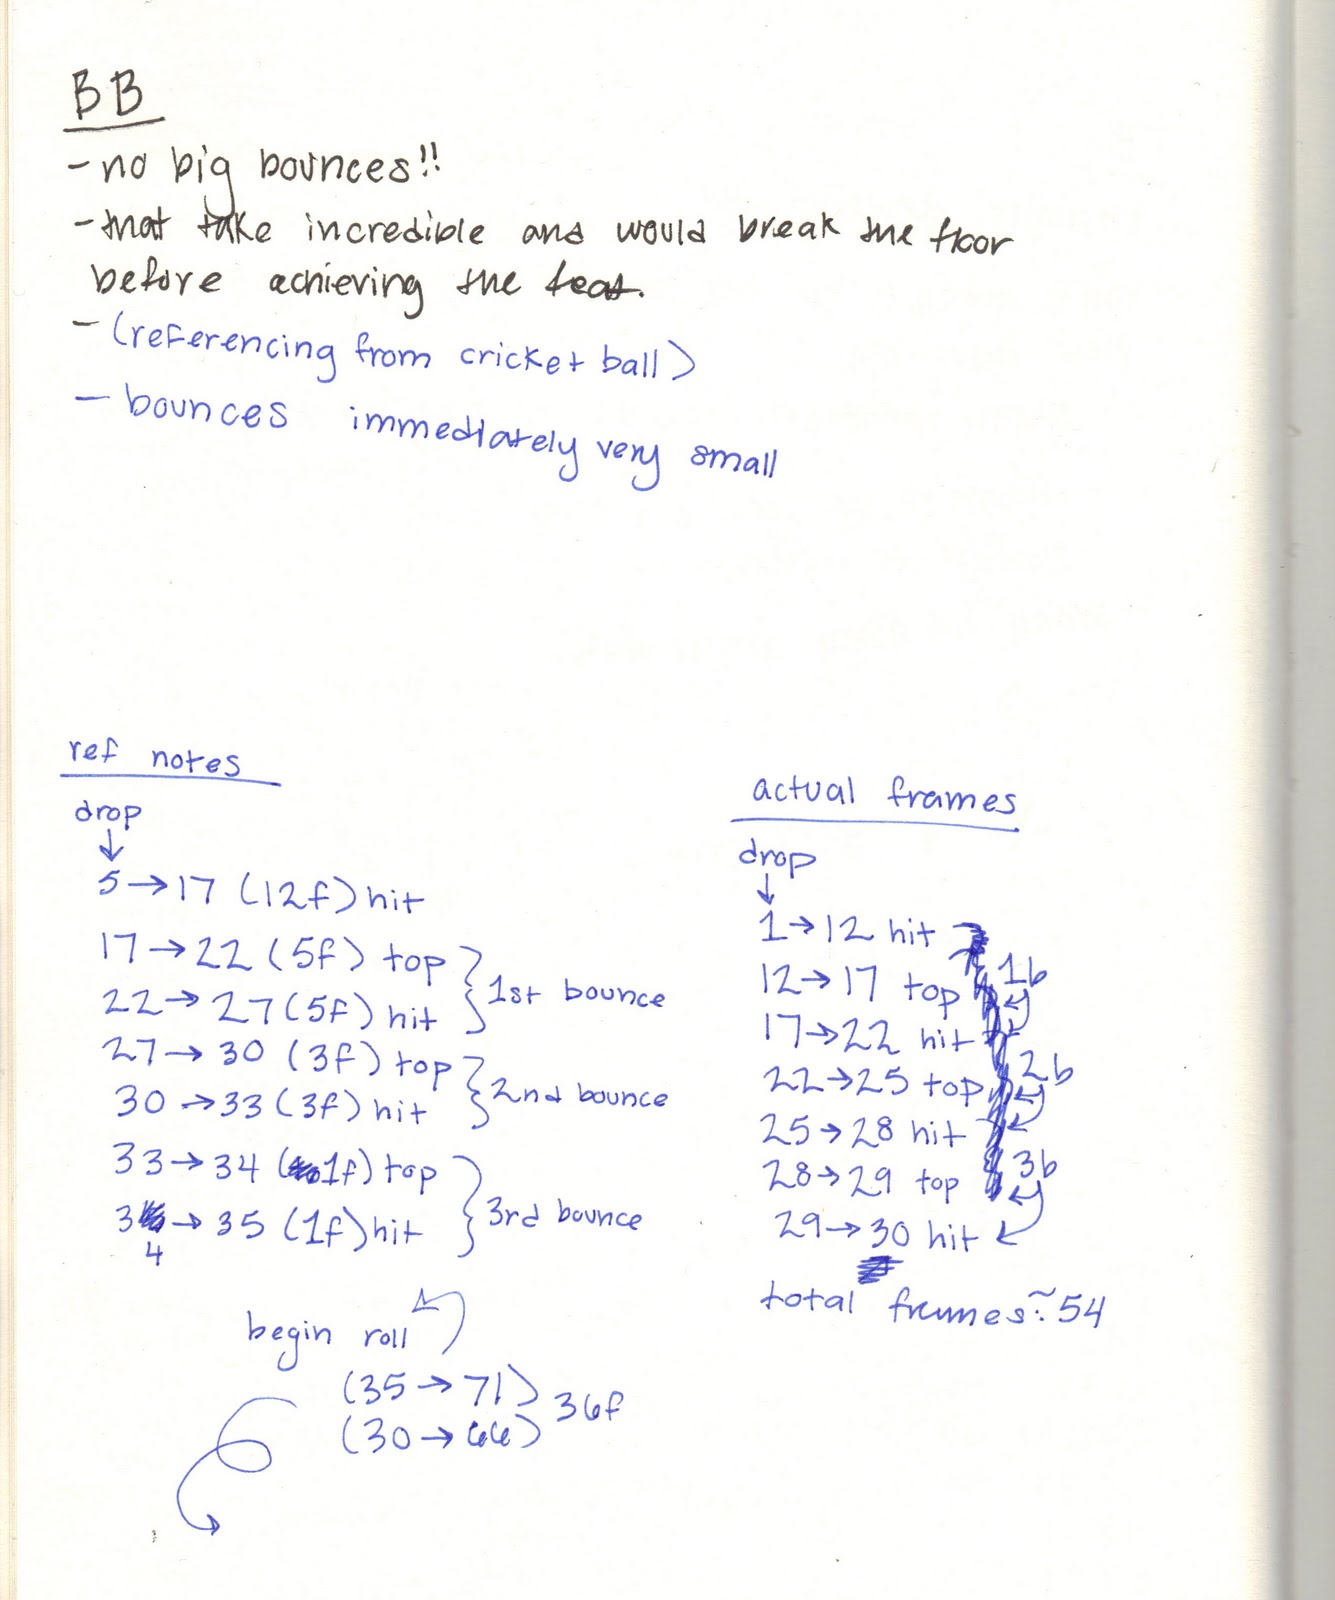 BB
- no big bounces!!
- that take incredible and would break the floor
before achieving the feat.
- (referencing from cricket ball)
- bounces immediately very small
ref notes
drop
↓
5 → 17 (12f) hit
17 → 22 (5f) top
22 → 27 (5f) hit
1st bounce
27 → 30 (3f) top
30 → 33 (3f) hit
2nd bounce
33 → 34 (1f) top
34 → 35 (1f) hit
3rd bounce
begin roll
(35 → 71)
(30 → 66)
36f
actual frames
drop
↓
1 → 12 hit
12 → 17 top
1b
17 → 22 hit
22 → 25 top
2b
25 → 28 hit
28 → 29 top
3b
29 → 30 hit
total frames: ~54